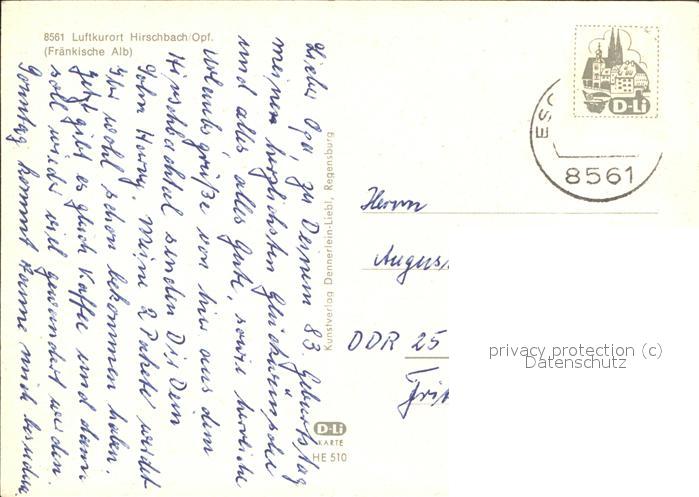 8561 Luftkurort Hirschbach/Opf.
(Fränkische Alb)
Lieber Opa, zu Deinem 83. Geburtstag
meinen herzlichsten Glückwunsch
und alles, alles Gute, sowie herzliche
Urlaubsgrüße von hier aus dem
Hirschbachtal senden Dir Dein
Sohn Harry. Meine 2 Pakete werdet
Ihr wohl schon bekommen haben.
Jetzt gibt es gleich Kaffee und dann
soll wieder viel gewandert werden.
Sonntag kommt
Kunstverlag Dennerlein-Liebl, Regensburg
D-Li
KARTE
HE 510
D-Li
ESC
8561
Herrn
Augus
DDR 25
privacy protection (c)
Datenschutz